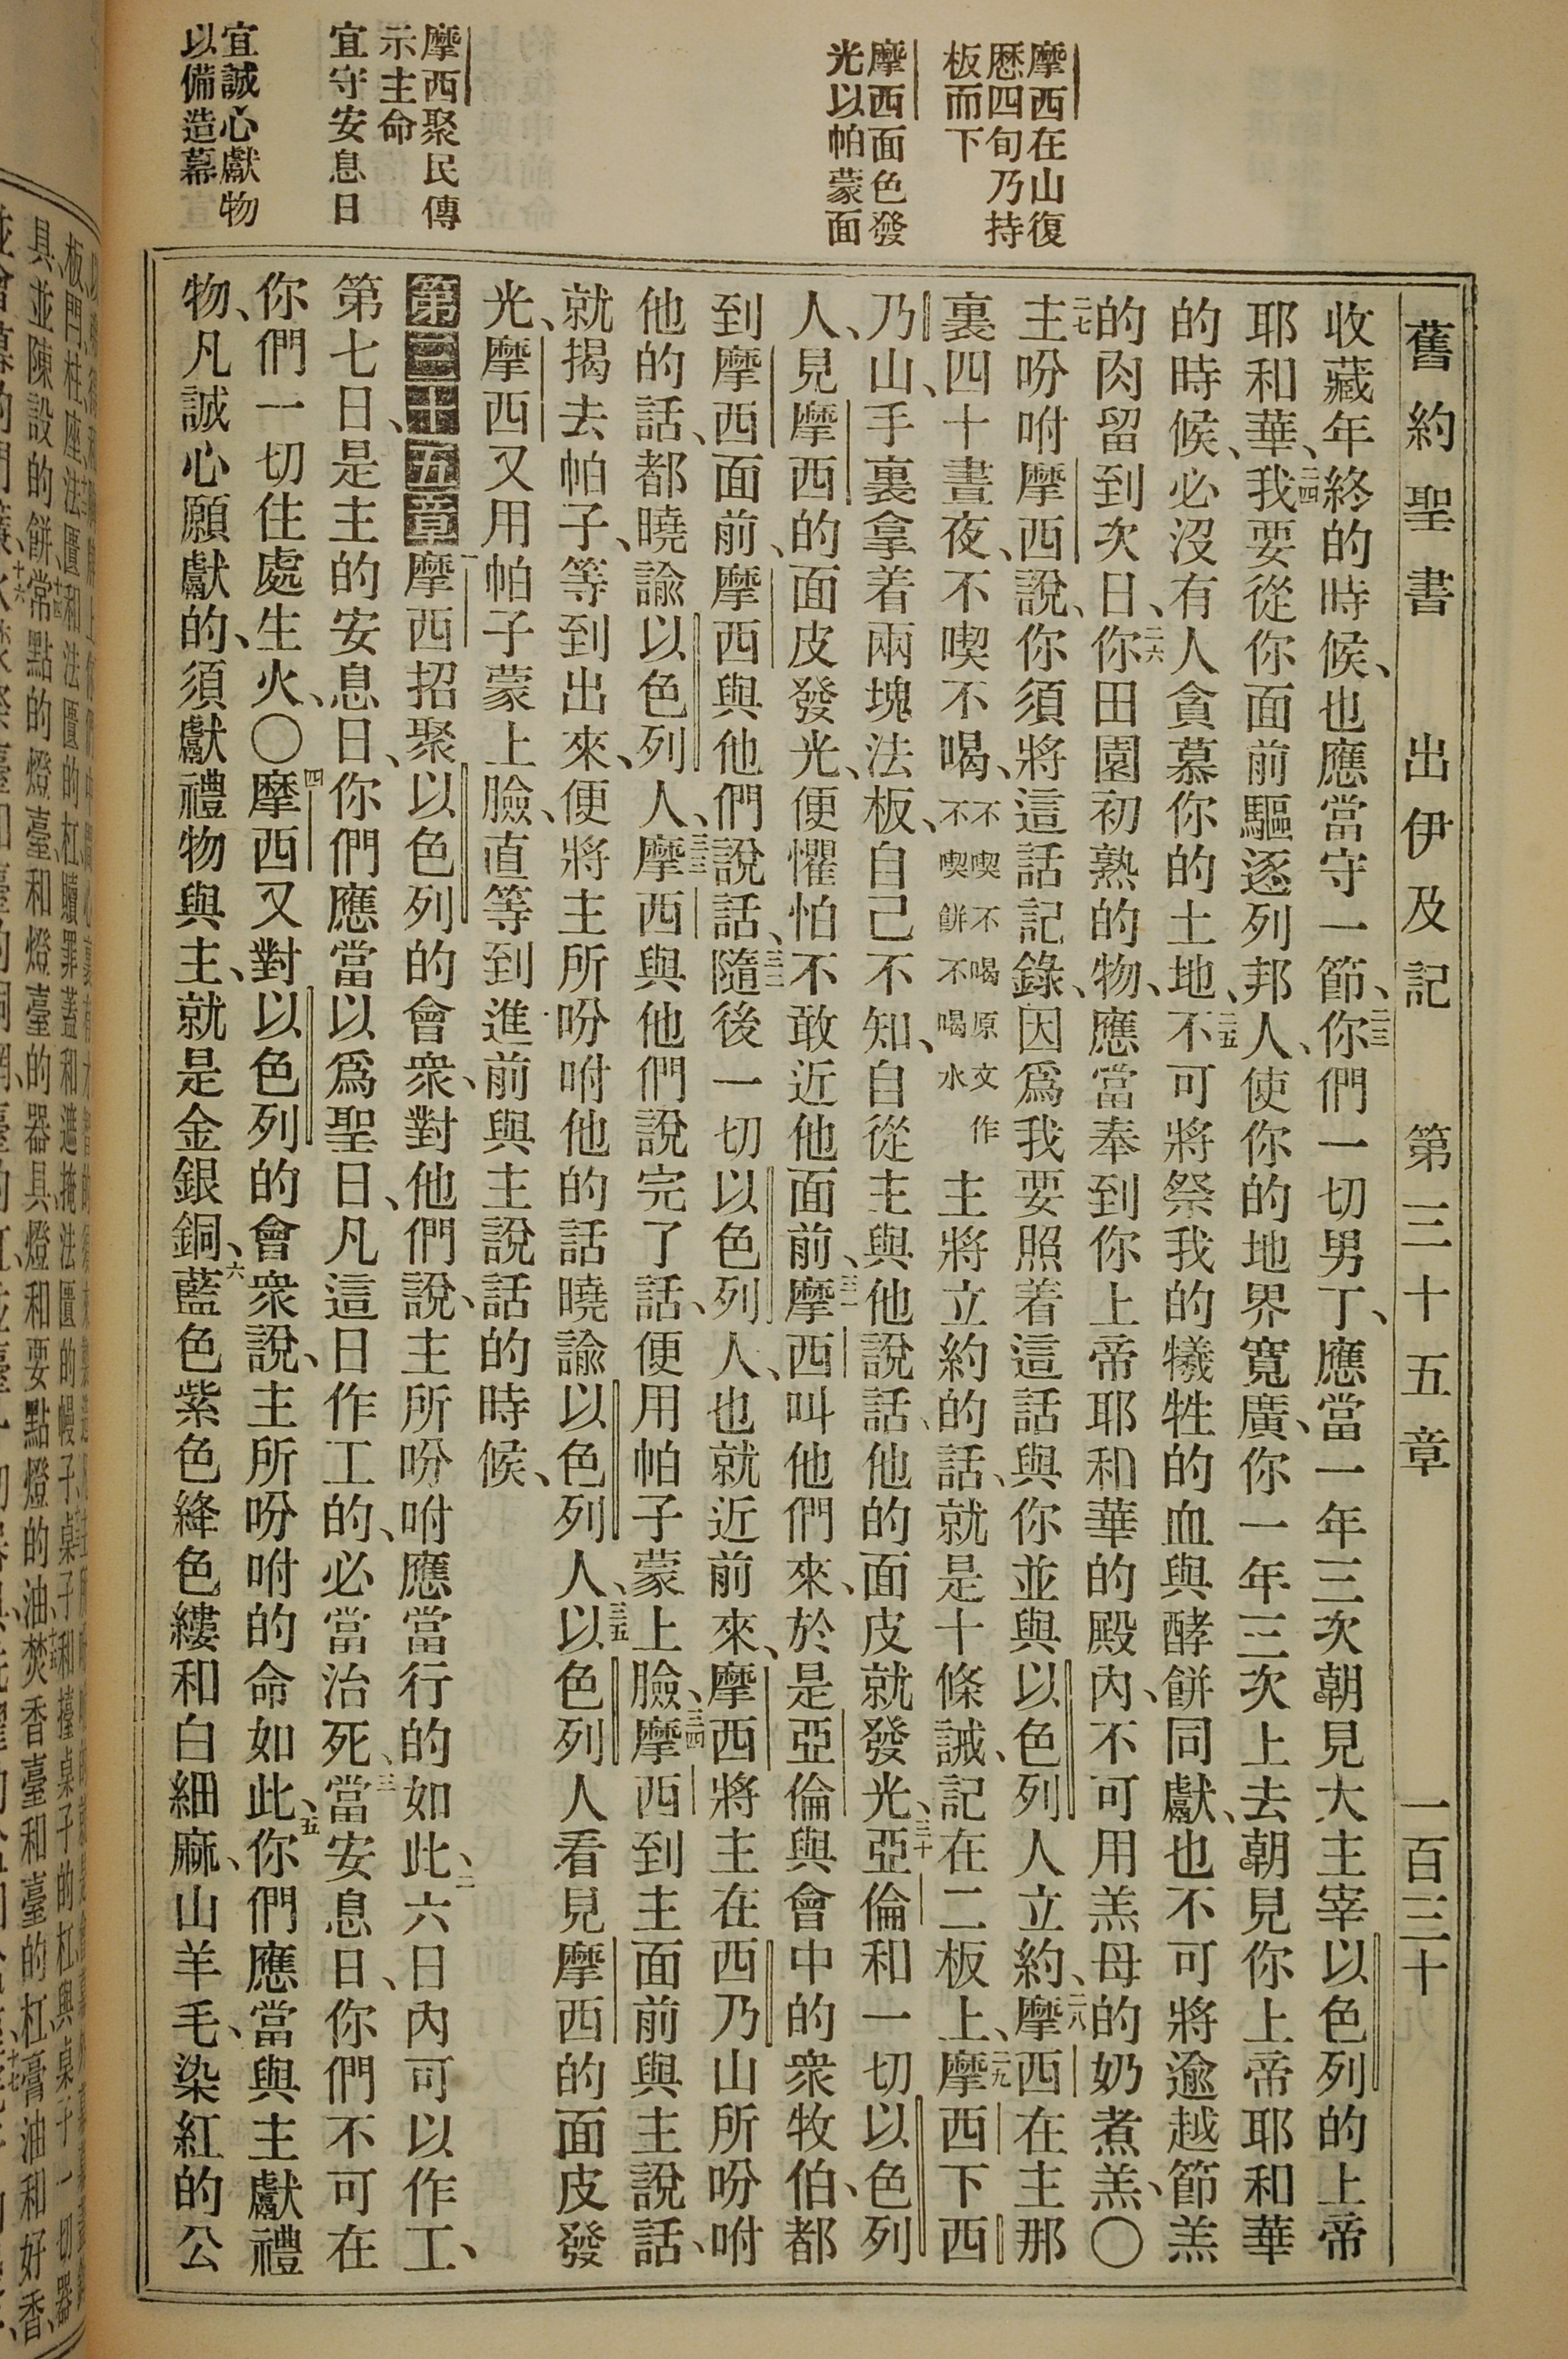 舊約聖書 出伊及記 第三十五章 一百三十
摩西在山復
歷四旬乃持
板而下
摩西面色發
光以帕蒙面
摩西聚民傳
示主命
宜守安息日
宜誠心獻物
以備造幕
收藏年終的時候、也應當守一節、二三你們一切男丁、應當一年三次朝見大主宰以色列的上帝
耶和華、二四我要從你面前驅逐列邦人、使你的地界寬廣、你一年三次上去朝見你上帝耶和華
的時候、必沒有人貪慕你的土地、二五不可將祭我的犧牲的血與酵餅同獻、也不可將逾越節羔
的肉留到次日、二六你田園初熟的物、應當奉到你上帝耶和華的殿內、不可用羔母的奶煮羔、〇
二七主吩咐摩西說、你須將這話記錄、因爲我要照着這話與你並與以色列人立約、二八摩西在主那
裏四十晝夜、不喫不喝、不喫不喝原文作不喫餅不喝水主將立約的話、就是十條誡、記在二板上、二九摩西下西
乃山、手裏拿着兩塊法板、自己不知、自從主與他說話、他的面皮就發光、三十亞倫和一切以色列
人、見摩西的面皮發光、便懼怕不敢近他面前、三一摩西叫他們來、於是亞倫與會中的衆牧伯、都
到摩西面前、摩西與他們說話、三二隨後一切以色列人、也就近前來、摩西將主在西乃山所吩咐
他的話、都曉諭以色列人、三三摩西與他們說完了話、便用帕子蒙上臉、三四摩西到主面前與主說話、
就揭去帕子、等到出來、便將主所吩咐他的話曉諭以色列人、三五以色列人看見摩西的面皮發
光、摩西又用帕子蒙上臉、直等到進前與主說話的時候、
第三十五章一摩西招聚以色列的會衆、對他們說、主所吩咐應當行的如此、二六日內可以作工、
第七日、是主的安息日、你們應當以爲聖日、凡這日作工的、必當治死、三當安息日、你們不可在
你們一切住處生火、〇四摩西又對以色列的會衆說、主所吩咐的命如此、五你們應當與主獻禮
物、凡誠心願獻的、須獻禮物與主、就是金銀銅、六藍色紫色絳色縷和白細麻、山羊毛、染紅的公
具、並陳設的餅、常點的燈臺、和燈臺的器具、燈和要點燈的油、焚香臺和臺的杠、膏油和好香、